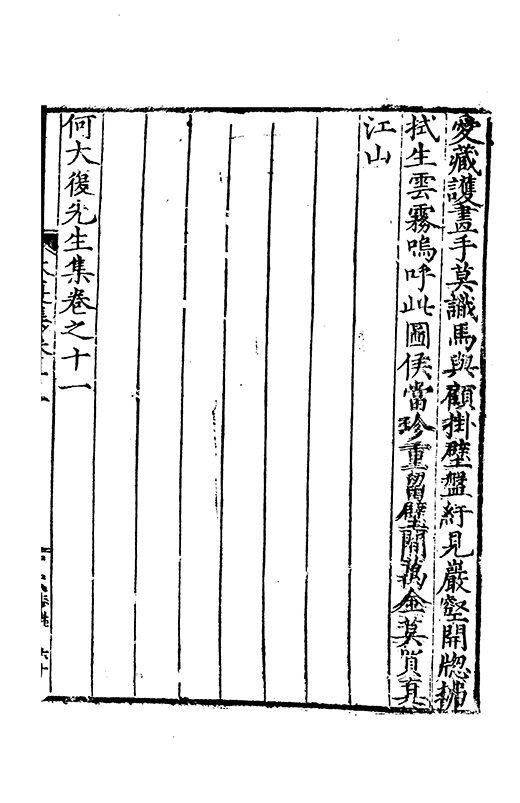 愛藏護畫手莫識馬與顧掛壁盤紆見巖壑開牕拂
拭生雲霧嗚呼此圖侯當珍重留壁間萬金莫買真
江山
何大復先生集卷之十一